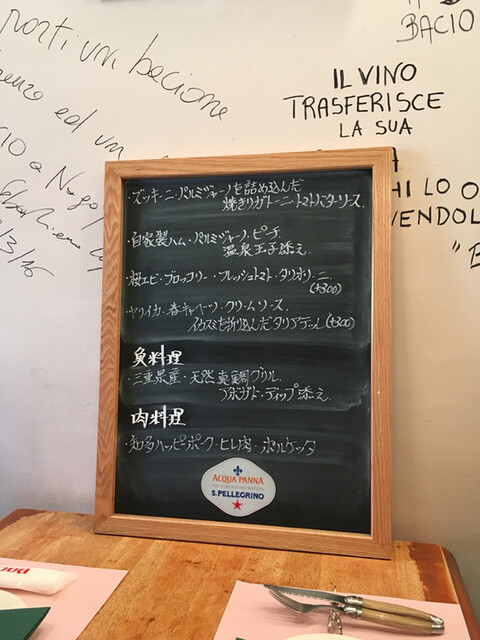 porti un bacione
BACIO
IL VINO
TRASFERISCE
LA SUA
HI LO
VENDOL
3/16
・ズッキーニ・パルミジャーノを詰め込んだ
焼きリガトーニ・トマトバターソース.
・自家製ハム・パルミジャーノ・ピーチ
温泉玉子添え.
・桜エビ・ブロッコリー・フレッシュトマト・タリオリーニ
(+300)
・ヤリイカ・春キャベツ・クリームソース.
イカスミを折り込んだタリアテッレ (+300)
魚料理
・三重県産・天然真鯛グリル.
アボガド・ディップ添え.
肉料理
・知多ハッピーポーク・ヒレ肉・ポルケッタ
ACQUA PANNA
S.PELLEGRINO